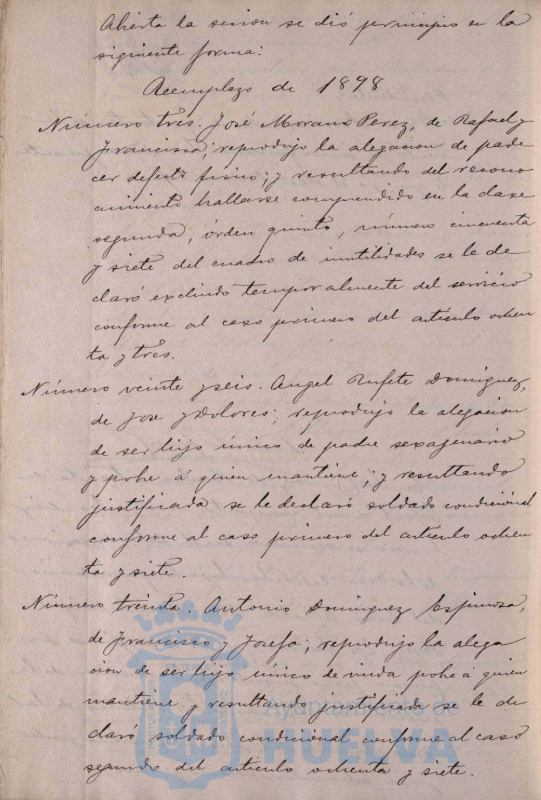 Abierta la sesion se dió principio en la
siguiente forma:
Reemplazo de 1898
Número tres. José Morano Perez, de Rafael y
Francisca; reprodujo la alegacion de pade
cer defecto fisico; y resultando del recono
cimiento hallarse comprendido en la clase
segunda, órden quinto, número cincuenta
y siete del cuadro de inutilidades se le de
claró excluido temporalmente del servicio
conforme al caso primero del articulo ochen
ta y tres.
Número veinte y seis. Angel Rufete Dominguez,
de Jose y Dolores; reprodujo la alegacion
de ser hijo único de padre sexagenario
y pobre á quien mantiene; y resultando
justificada se le declaró soldado condicional
conforme al caso primero del articulo ochen
ta y siete.
Número treinta. Antonio Dominguez Espinosa,
de Francisco y Josefa; reprodujo la alega
cion de ser hijo único de viuda pobre á quien
mantiene y resultando justificada se le de
claró soldado condicional conforme al caso
segundo del articulo ochenta y siete.
Ayuntamiento de
HUELVA